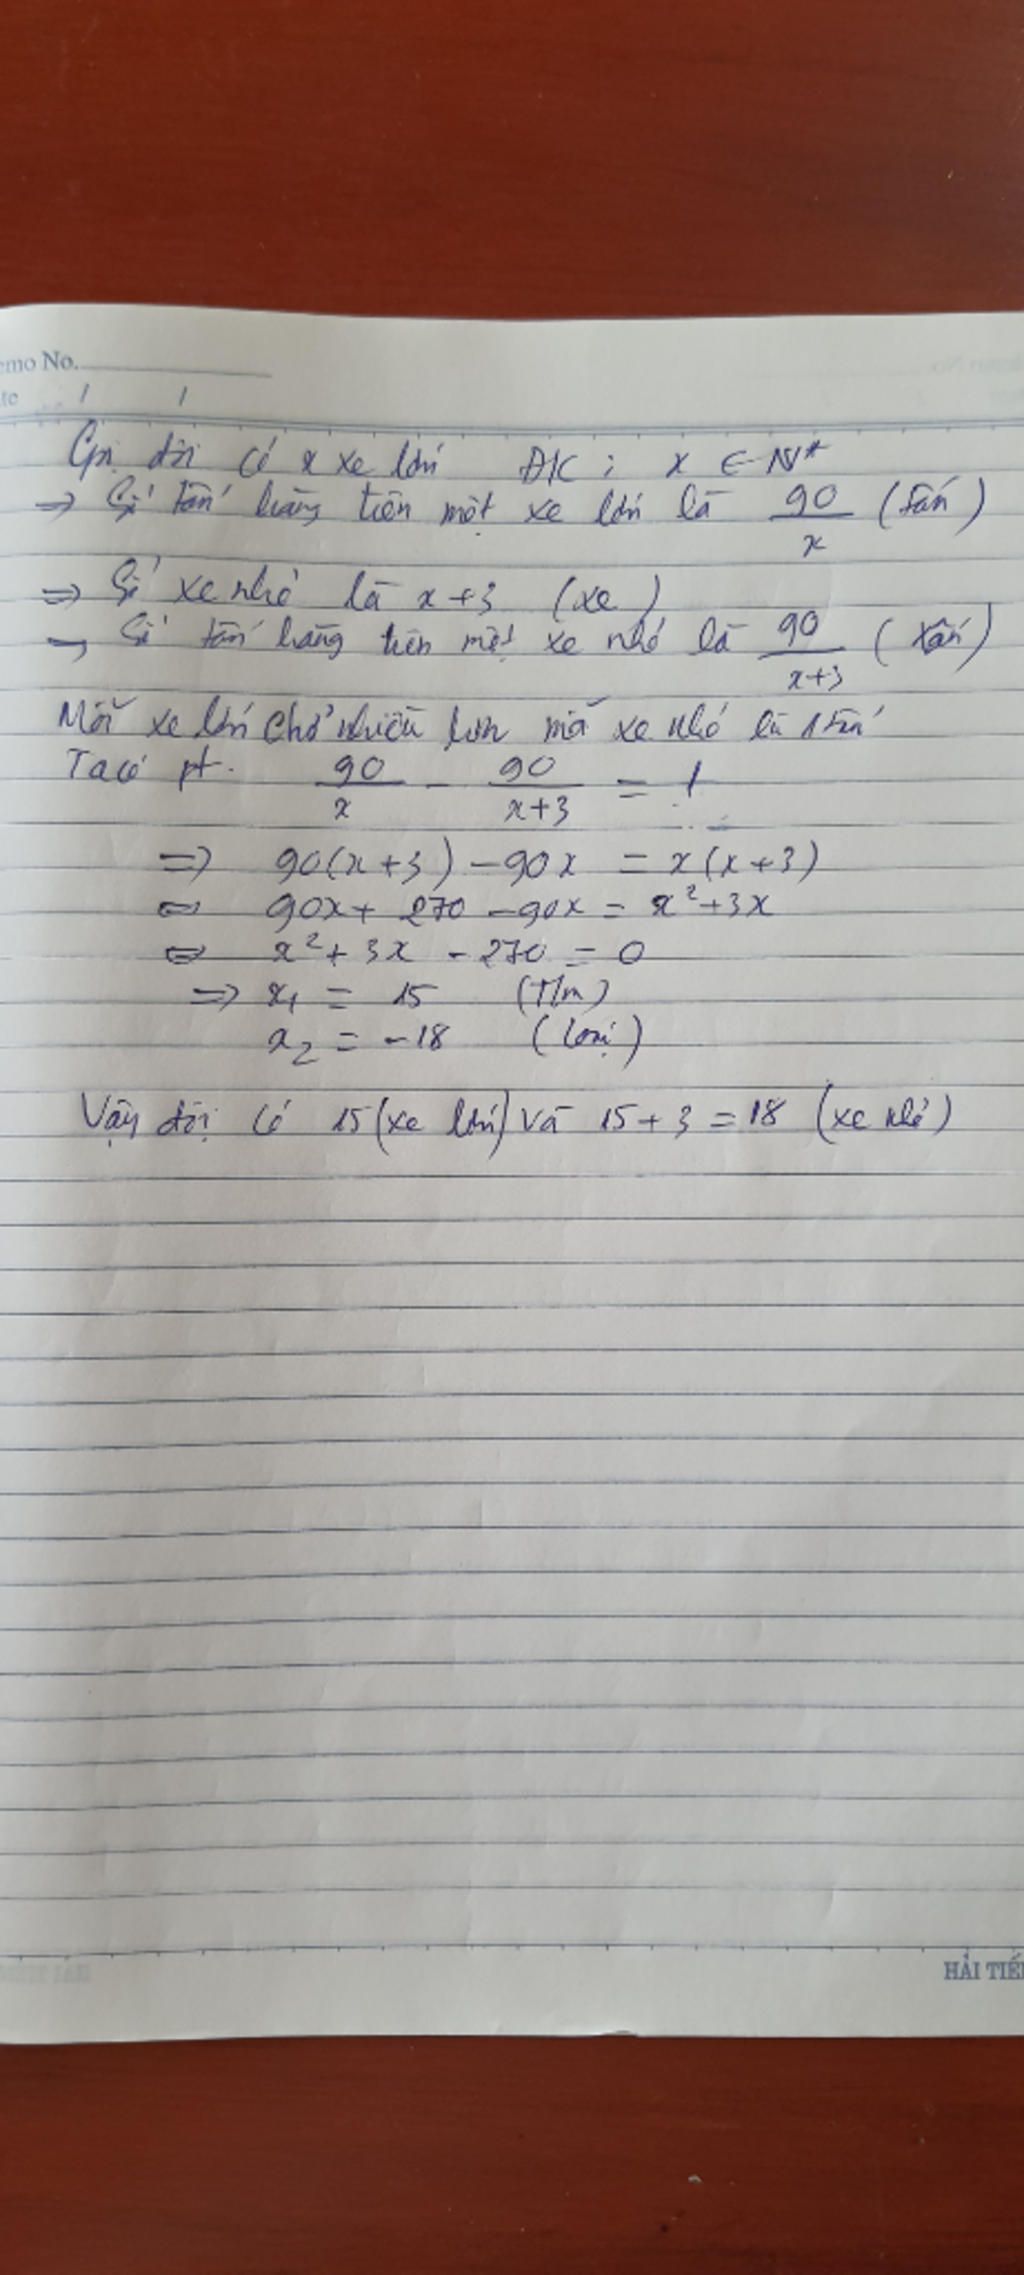 emo No.
te / /
Gọi đội có x xe lớn ĐK: x ∈ N*
=> Số tấn hàng trên một xe lớn là 90/x (tấn)
=> Số xe nhỏ là x+3 (xe)
→ Số tấn hàng trên một xe nhỏ là 90/(x+3) (tấn)
Mỗi xe lớn chở nhiều hơn mỗi xe nhỏ là 1 tấn
Ta có pt. 90/x - 90/(x+3) = 1
=> 90(x+3) - 90x = x(x+3)
<=> 90x + 270 - 90x = x² + 3x
<=> x² + 3x - 270 = 0
=> x₁ = 15 (T/m)
x₂ = -18 (loại)
Vậy đội có 15 (xe lớn) và 15 + 3 = 18 (xe nhỏ)
HẢI TIẾ